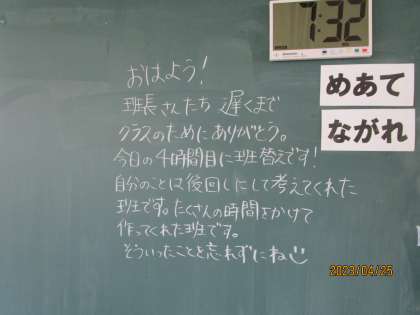 7:32
めあて
ながれ
おはよう!
班長さんたち 遅くまで
クラスのためにありがとう。
今日の4時間目に班替えです!
自分のことは後回しにして考えてくれた
班です。たくさんの時間をかけて
作ってくれた班です。
そういったことを忘れずにね
2023/04/25